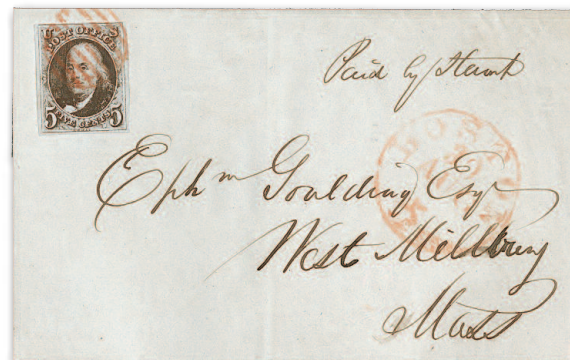 POST OFFICE
5 5
FIVE CENTS
Paid by Stamp
BOSTON
Ephm Goulding Esqr
West Millbury
Mass